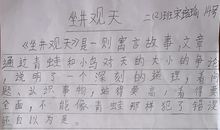 坐井观天
二(2)班宋绘瑜 14号
《坐井观天》是一则寓言故事,文章
通过青蛙和小鸟对天的大小的争论
,说明了一个深刻的道理,看问
题、认识事物,站得要高,看得要
全面,不能像青蛙那样犯了错误
还自以为是。